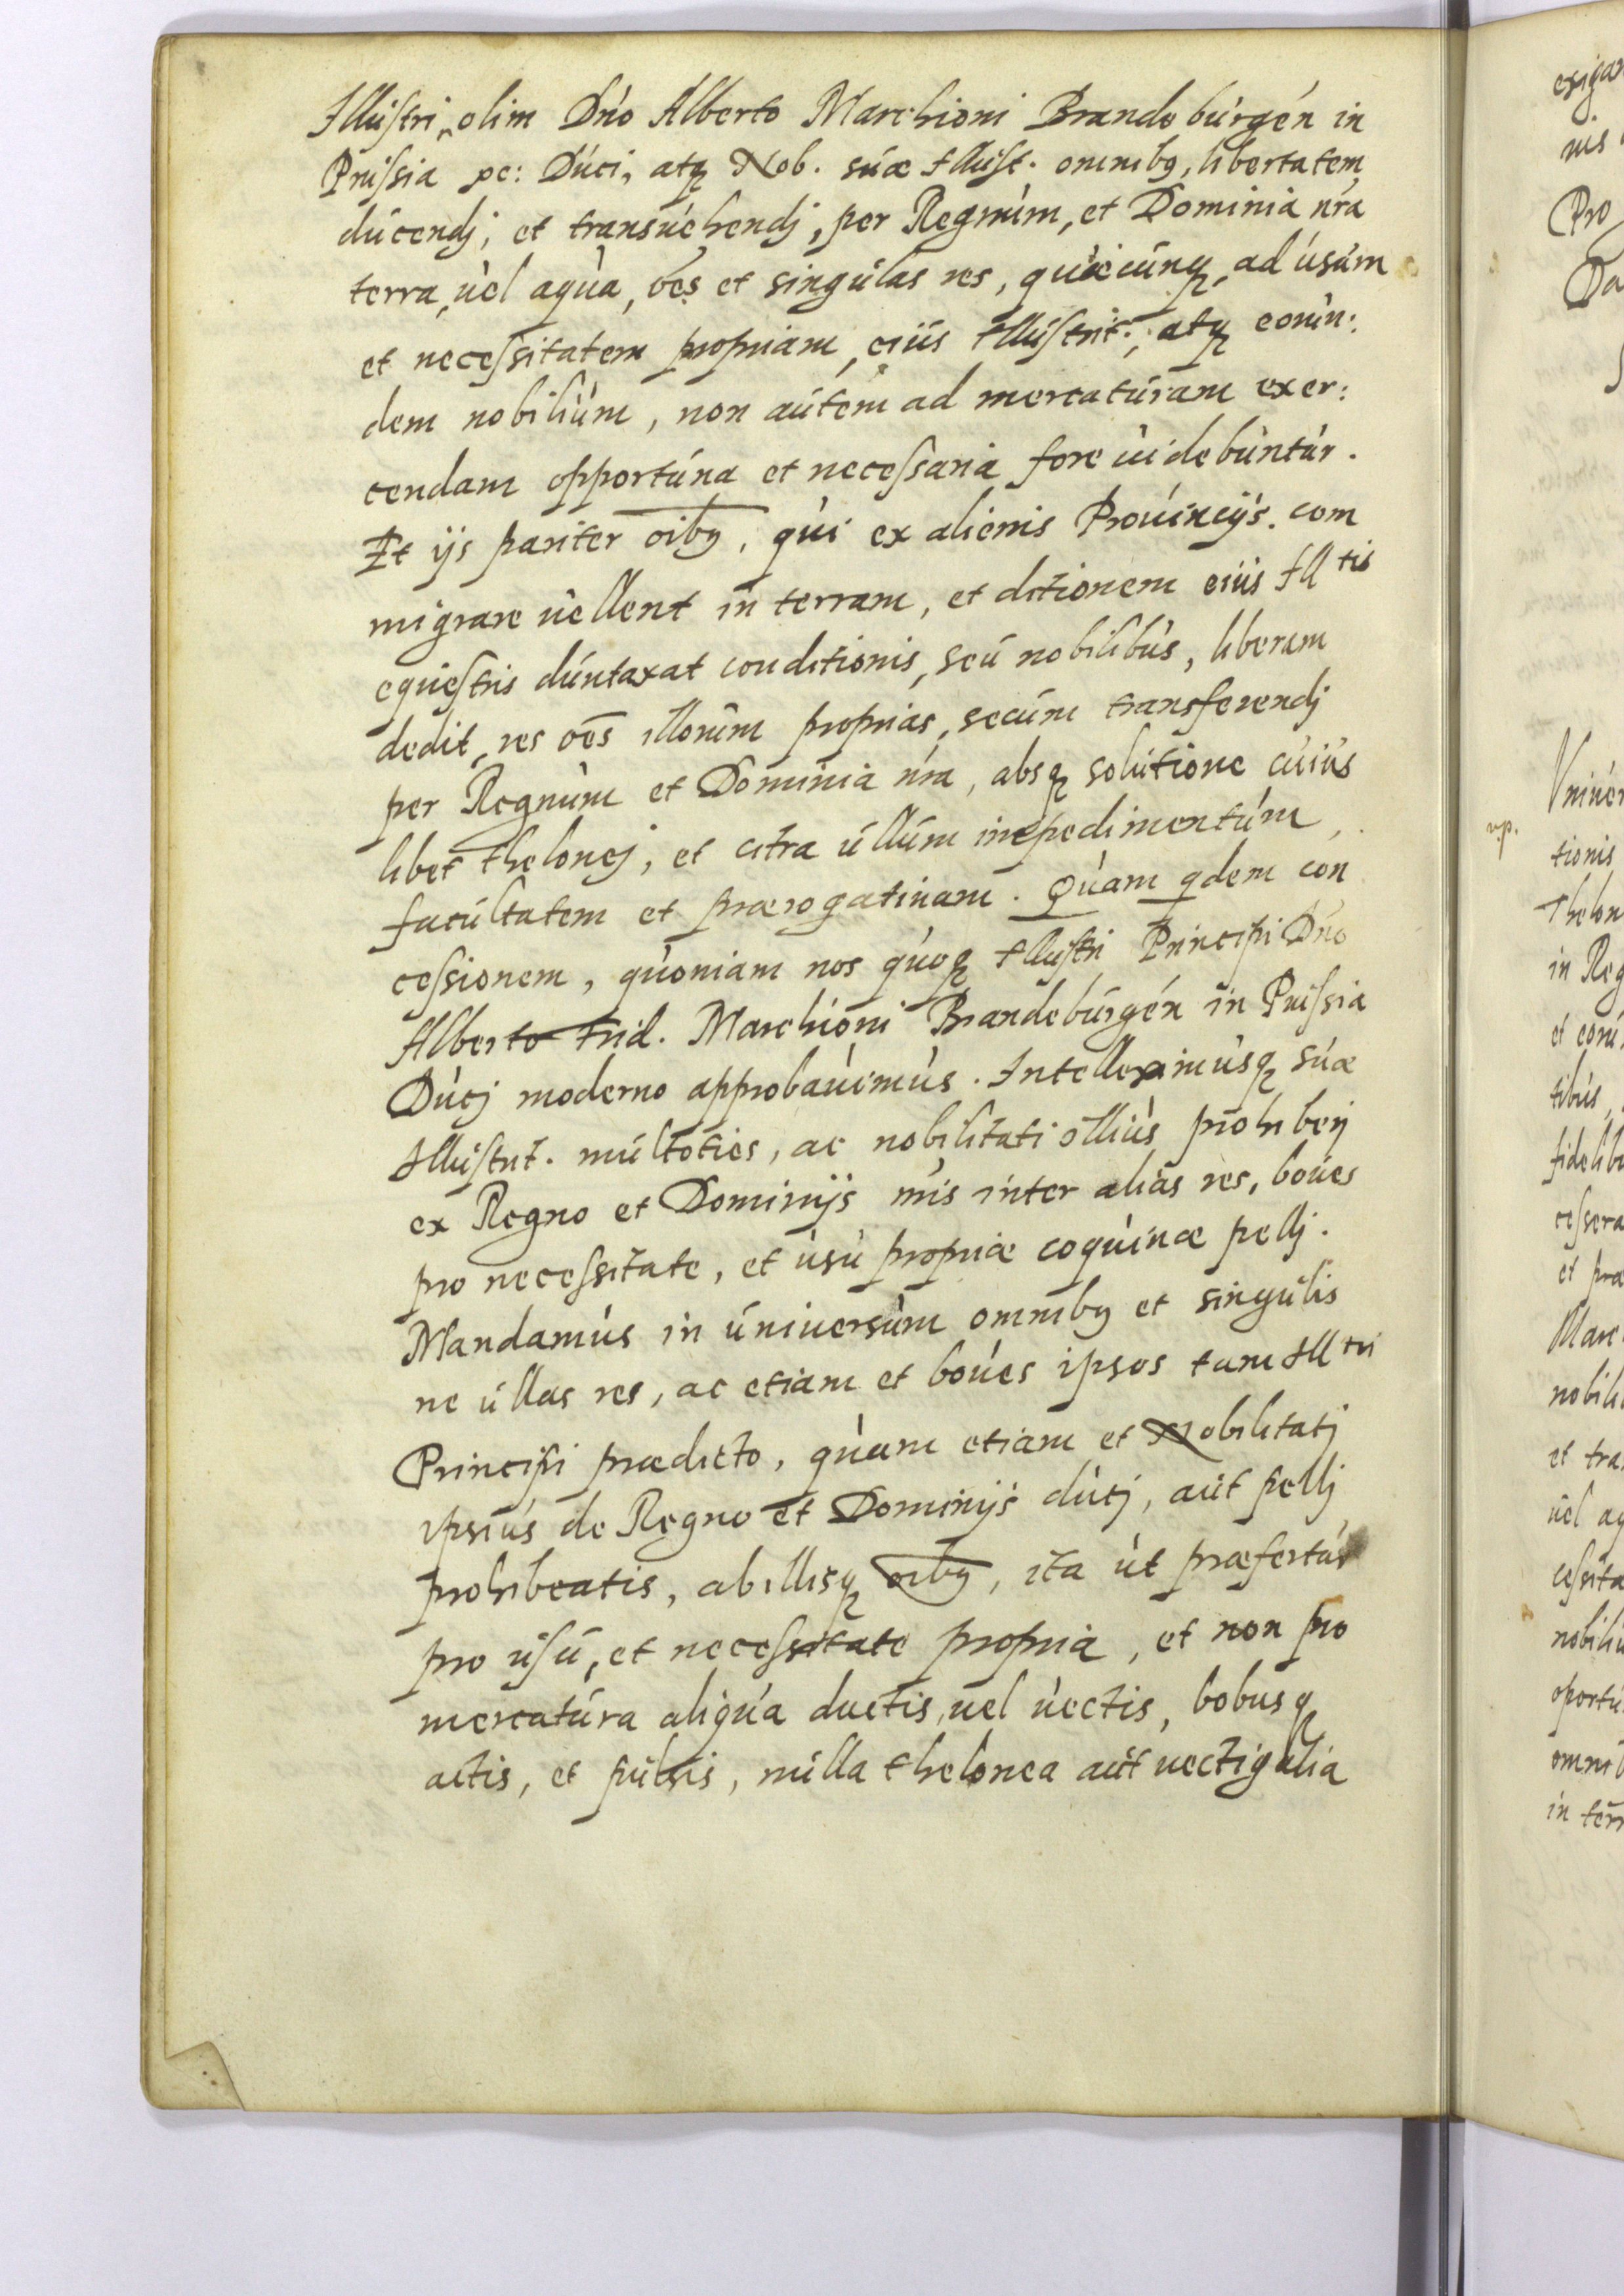 Illustri, olim Dno Alberto Marchioni Brandeburgen in
Prussia &c: Duci, atq Nob. suæ Illust. omnibq, libertatem
ducendj, et transuehendj, per Regnum, et Dominia nra
terra, uel aqua, oẽs et singulas res, quæcunq, ad usum
et necessitatem propriam, eius Illustrit:, atq eorun:
dem nobilium, non autem ad mercaturam exer:
cendam opportuna et necessaria fore uidebuntur.
Et ijs pariter oibq, qui ex alienis Prouincijs. com
migrare uellent in terram, et ditionem eius Ill tis
equestris duntaxat conditionis, seu nobilibus, liberam
dedit, res oẽs illorum proprias, secum transferendj
per Regnum et Dominia nra, absq solutione cuius
libet thelonej, et citra ullum impedimentum,
facultatem et prærogatiuam. Quam qdem con
cessionem, quoniam nos quoq Illustri Principi Dno
Alberto Frid. Marchioni Brandeburgen in Prussia
Ducj moderno approbauimus. Intelleximusq suæ
Illustrit. multoties, ac nobilitati illius prohiberj
ex Regno et Dominijs nris inter alias res, boues
pro necessitate, et usu propriæ coquinæ pellj.
Mandamus in uniuersum omnibq et singulis
ne ullas res, ac etiam et boues ipsos tam Ill tri
Principi prædicto, quam etiam et Nobilitatj
ipsius de Regno et Dominijs ducj, aut pellj,
prohibeatis, ab illisq oibq, ita ut præfertur
pro usu, et necessitate propria, et non pro
mercatura aliqua ductis, uel uectis, bobusq
actis, et pulsis, nulla thelonea aut uectigalia